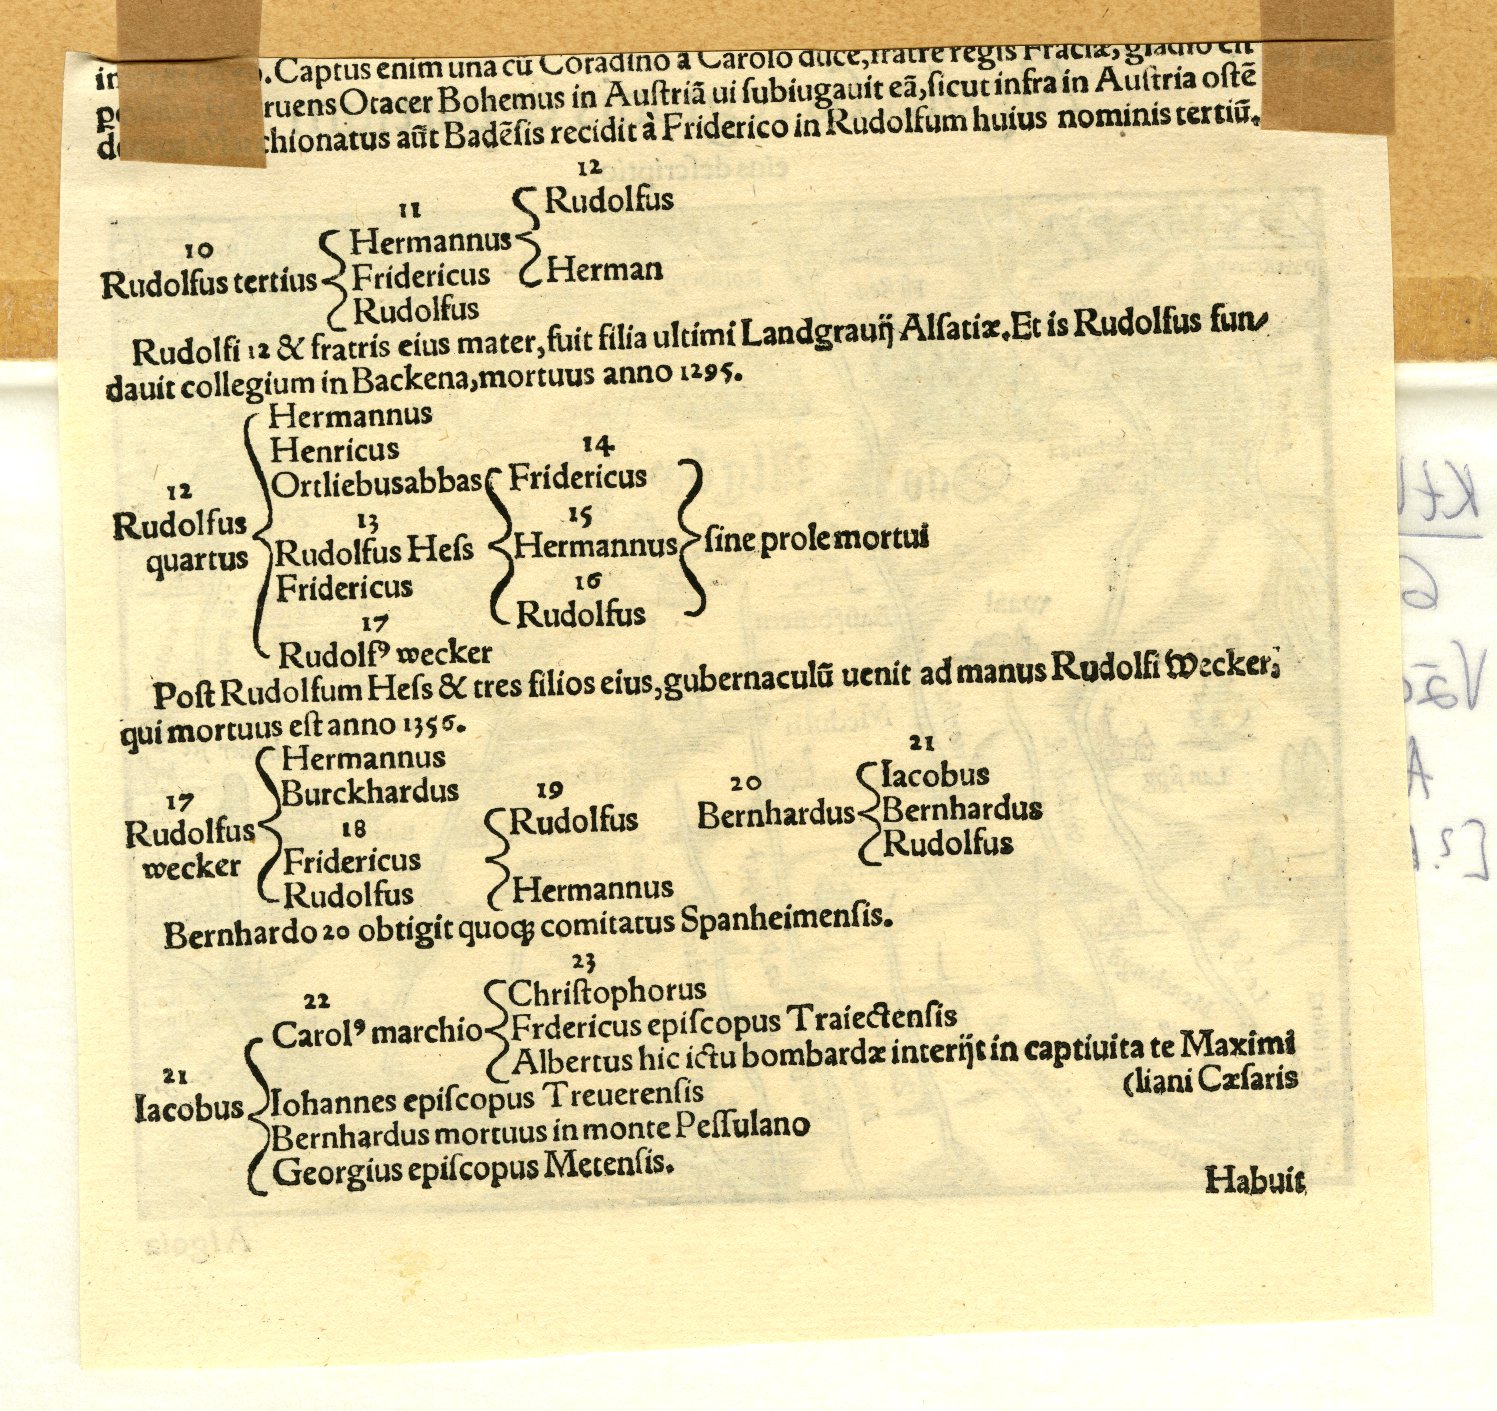 in . Captus enim una cũ Coradino à Carolo duce, fratre regis Frãciæ, gladio est
ruens Otacer Bohemus in Austriã ui subiugauit eã, sicut infra in Austria ostẽ
chionatus aũt Badẽsis recidit à Friderico in Rudolfum huius nominis tertiũ.
12
Rudolfus
11
Hermannus
10
Rudolfus tertius
Fridericus
Herman
Rudolfus
Rudolfi 12 & fratris eius mater, fuit filia ultimi Landgrauij Alsatiæ. Et is Rudolfus fun/
dauit collegium in Backena, mortuus anno 1295.
Hermannus
Henricus
14
Ortliebus abbas
Fridericus
12
Rudolfus
quartus
13
Rudolfus Hess
15
Hermannus
sine prole mortui
Fridericus
16
Rudolfus
17
Rudolfꝰ wecker
Post Rudolfum Hess & tres filios eius, gubernaculũ uenit ad manus Rudolfi Wecker,
qui mortuus est anno 1356.
Hermannus
Burckhardus
17
Rudolfus
wecker
18
Fridericus
Rudolfus
19
Rudolfus
Hermannus
20
Bernhardus
21
Iacobus
Bernhardus
Rudolfus
Bernhardo 20 obtigit quoqꝫ comitatus Spanheimensis.
23
Christophorus
22
Carolꝰ marchio
Frdericus episcopus Traiectensis
Albertus hic ictu bombardæ interijt in captiuita te Maximi
(liani Cæsaris
21
Iacobus
Iohannes episcopus Treuerensis
Bernhardus mortuus in monte Pessulano
Georgius episcopus Metensis.
Habuit